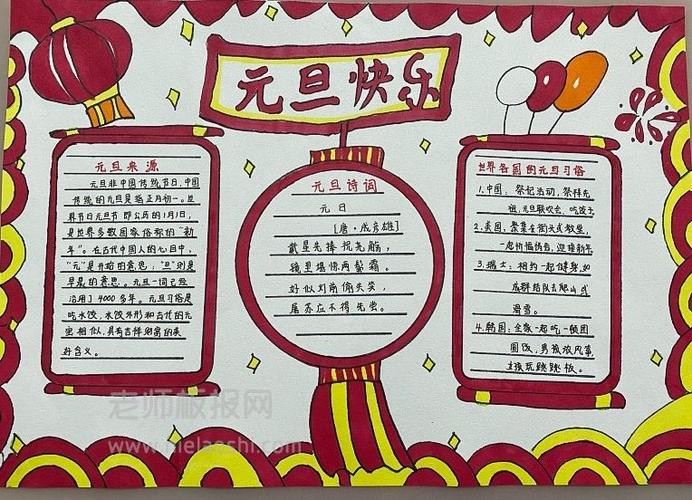 元旦快乐
元旦来源
元旦非中国传统节日,中国
传统的元旦是指正月初一。世
界节日元旦节即公历的1月1日,
是世界多数国家俗称的“新
年”。在古代中国人的心目中,
“元”是开始的意思;“旦”则是
早晨的意思。元旦一词已经
沿用了4000多年。元旦习俗是
吃水饺,水饺外形和古代的元
宝相似,具有吉祥财富的美
好含义。
元旦诗词
元日
[唐·成彦雄]
戴星先捧祝尧觞,
镜里堪惊两鬓霜。
好似灯前偷失笑,
屠苏应不得先尝。
世界各国的元旦习俗
1.中国:祭祀活动,祭拜先
祖,元旦联欢会,吃饺子
2.美国,聚集在街头或教堂,
一起祈福祷告,迎接新年
3.瑞士:相约一起健身,如
成群结队去爬山或
滑雪。
4.韩国:全家一起吃一顿团
圆饭,男孩放风筝
女孩玩跳跳板。
老师板报网